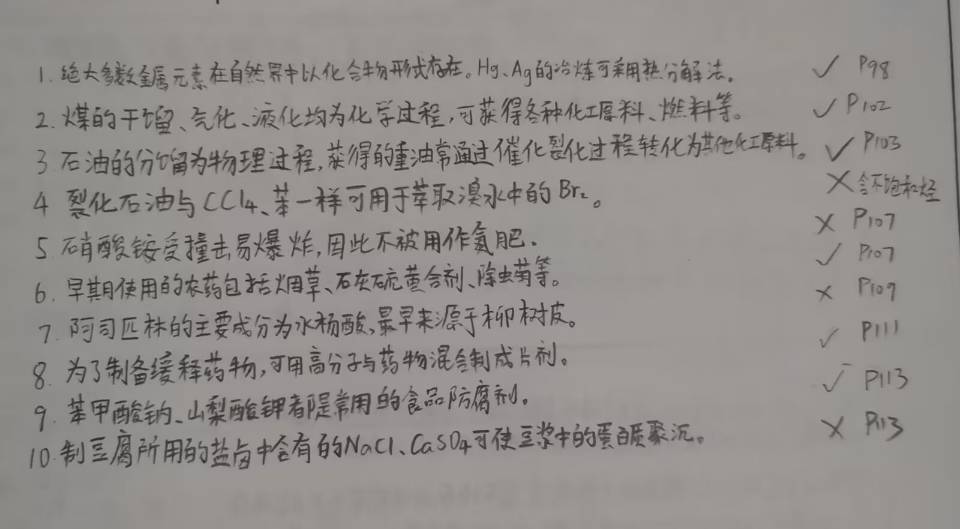 1. 绝大多数金属元素在自然界中以化合物形式存在。Hg、Ag的冶炼可采用热分解法。 ✓ P98
2. 煤的干馏、气化、液化均为化学过程,可获得各种化工原料、燃料等。 ✓ P102
3 石油的分馏为物理过程,获得的重油常通过催化裂化过程转化为其他化工原料。 ✓ P103
4 裂化石油与CCl4、苯一样可用于萃取溴水中的Br2。 ✗ 含不饱和烃
5 硝酸铵受撞击易爆炸,因此不被用作氮肥. ✗ P107
6. 早期使用的农药包括烟草、石灰硫黄合剂、除虫菊等。 ✓ P107
7. 阿司匹林的主要成分为水杨酸,最早来源于柳树皮。 ✗ P109
8. 为了制备缓释药物,可用高分子与药物混合制成片剂。 ✓ P111
9. 苯甲酸钠、山梨酸钾都是常用的食品防腐剂。 ✓ P113
10. 制豆腐所用的盐卤中含有的NaCl、CaSO4可使豆浆中的蛋白质聚沉。 ✗ P113